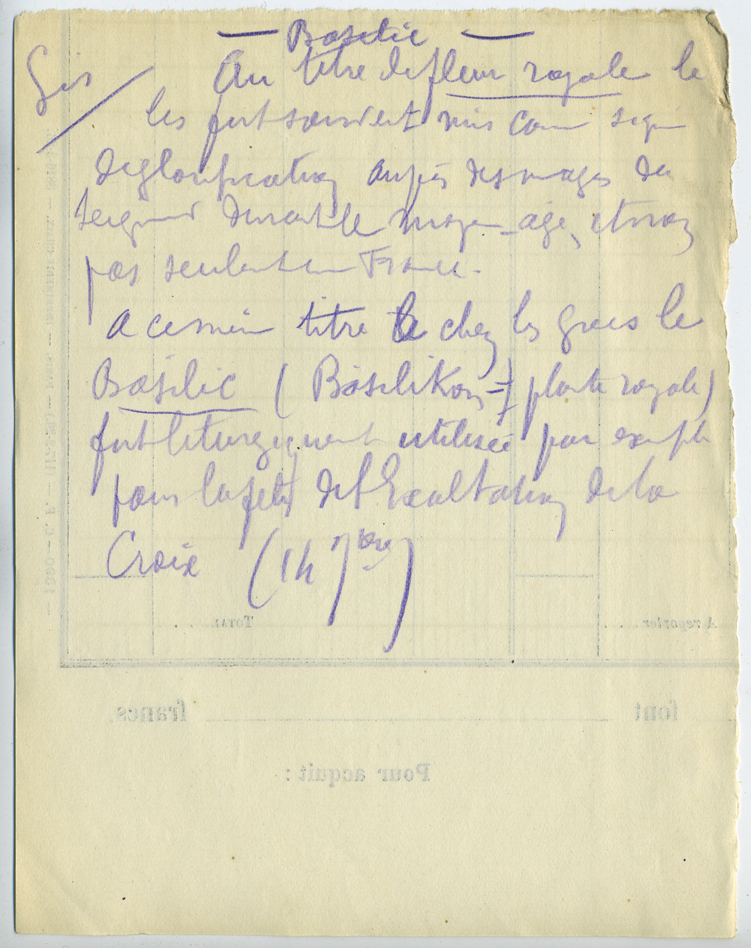 — Basilic —
Au titre de fleur royale le
lis fut souvent mis comme signe
de glorification auprès des images du
Seigneur durant le moyen-age, et non
pas seulement en France.
A ce même titre chez les grecs le
Basilic (Basilikon = plante royale)
fut liturgiquement utilisée par exemple
pour la fête de l'Exaltation de la
Croix (14 7bre)
Total
A reporter
font francs.
Pour acquit :